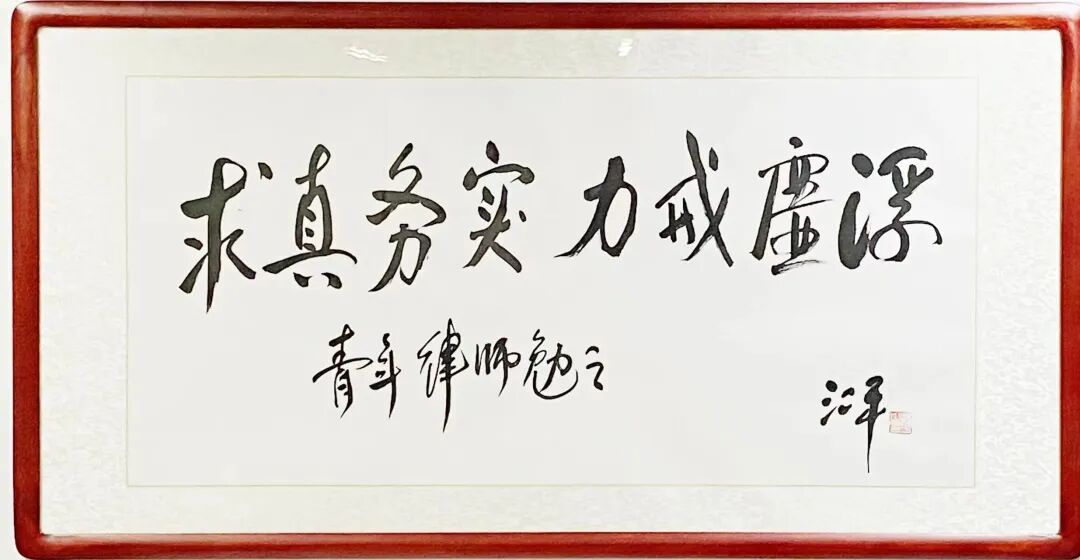 求真务实 力戒虚浮
青年律师勉之
江平